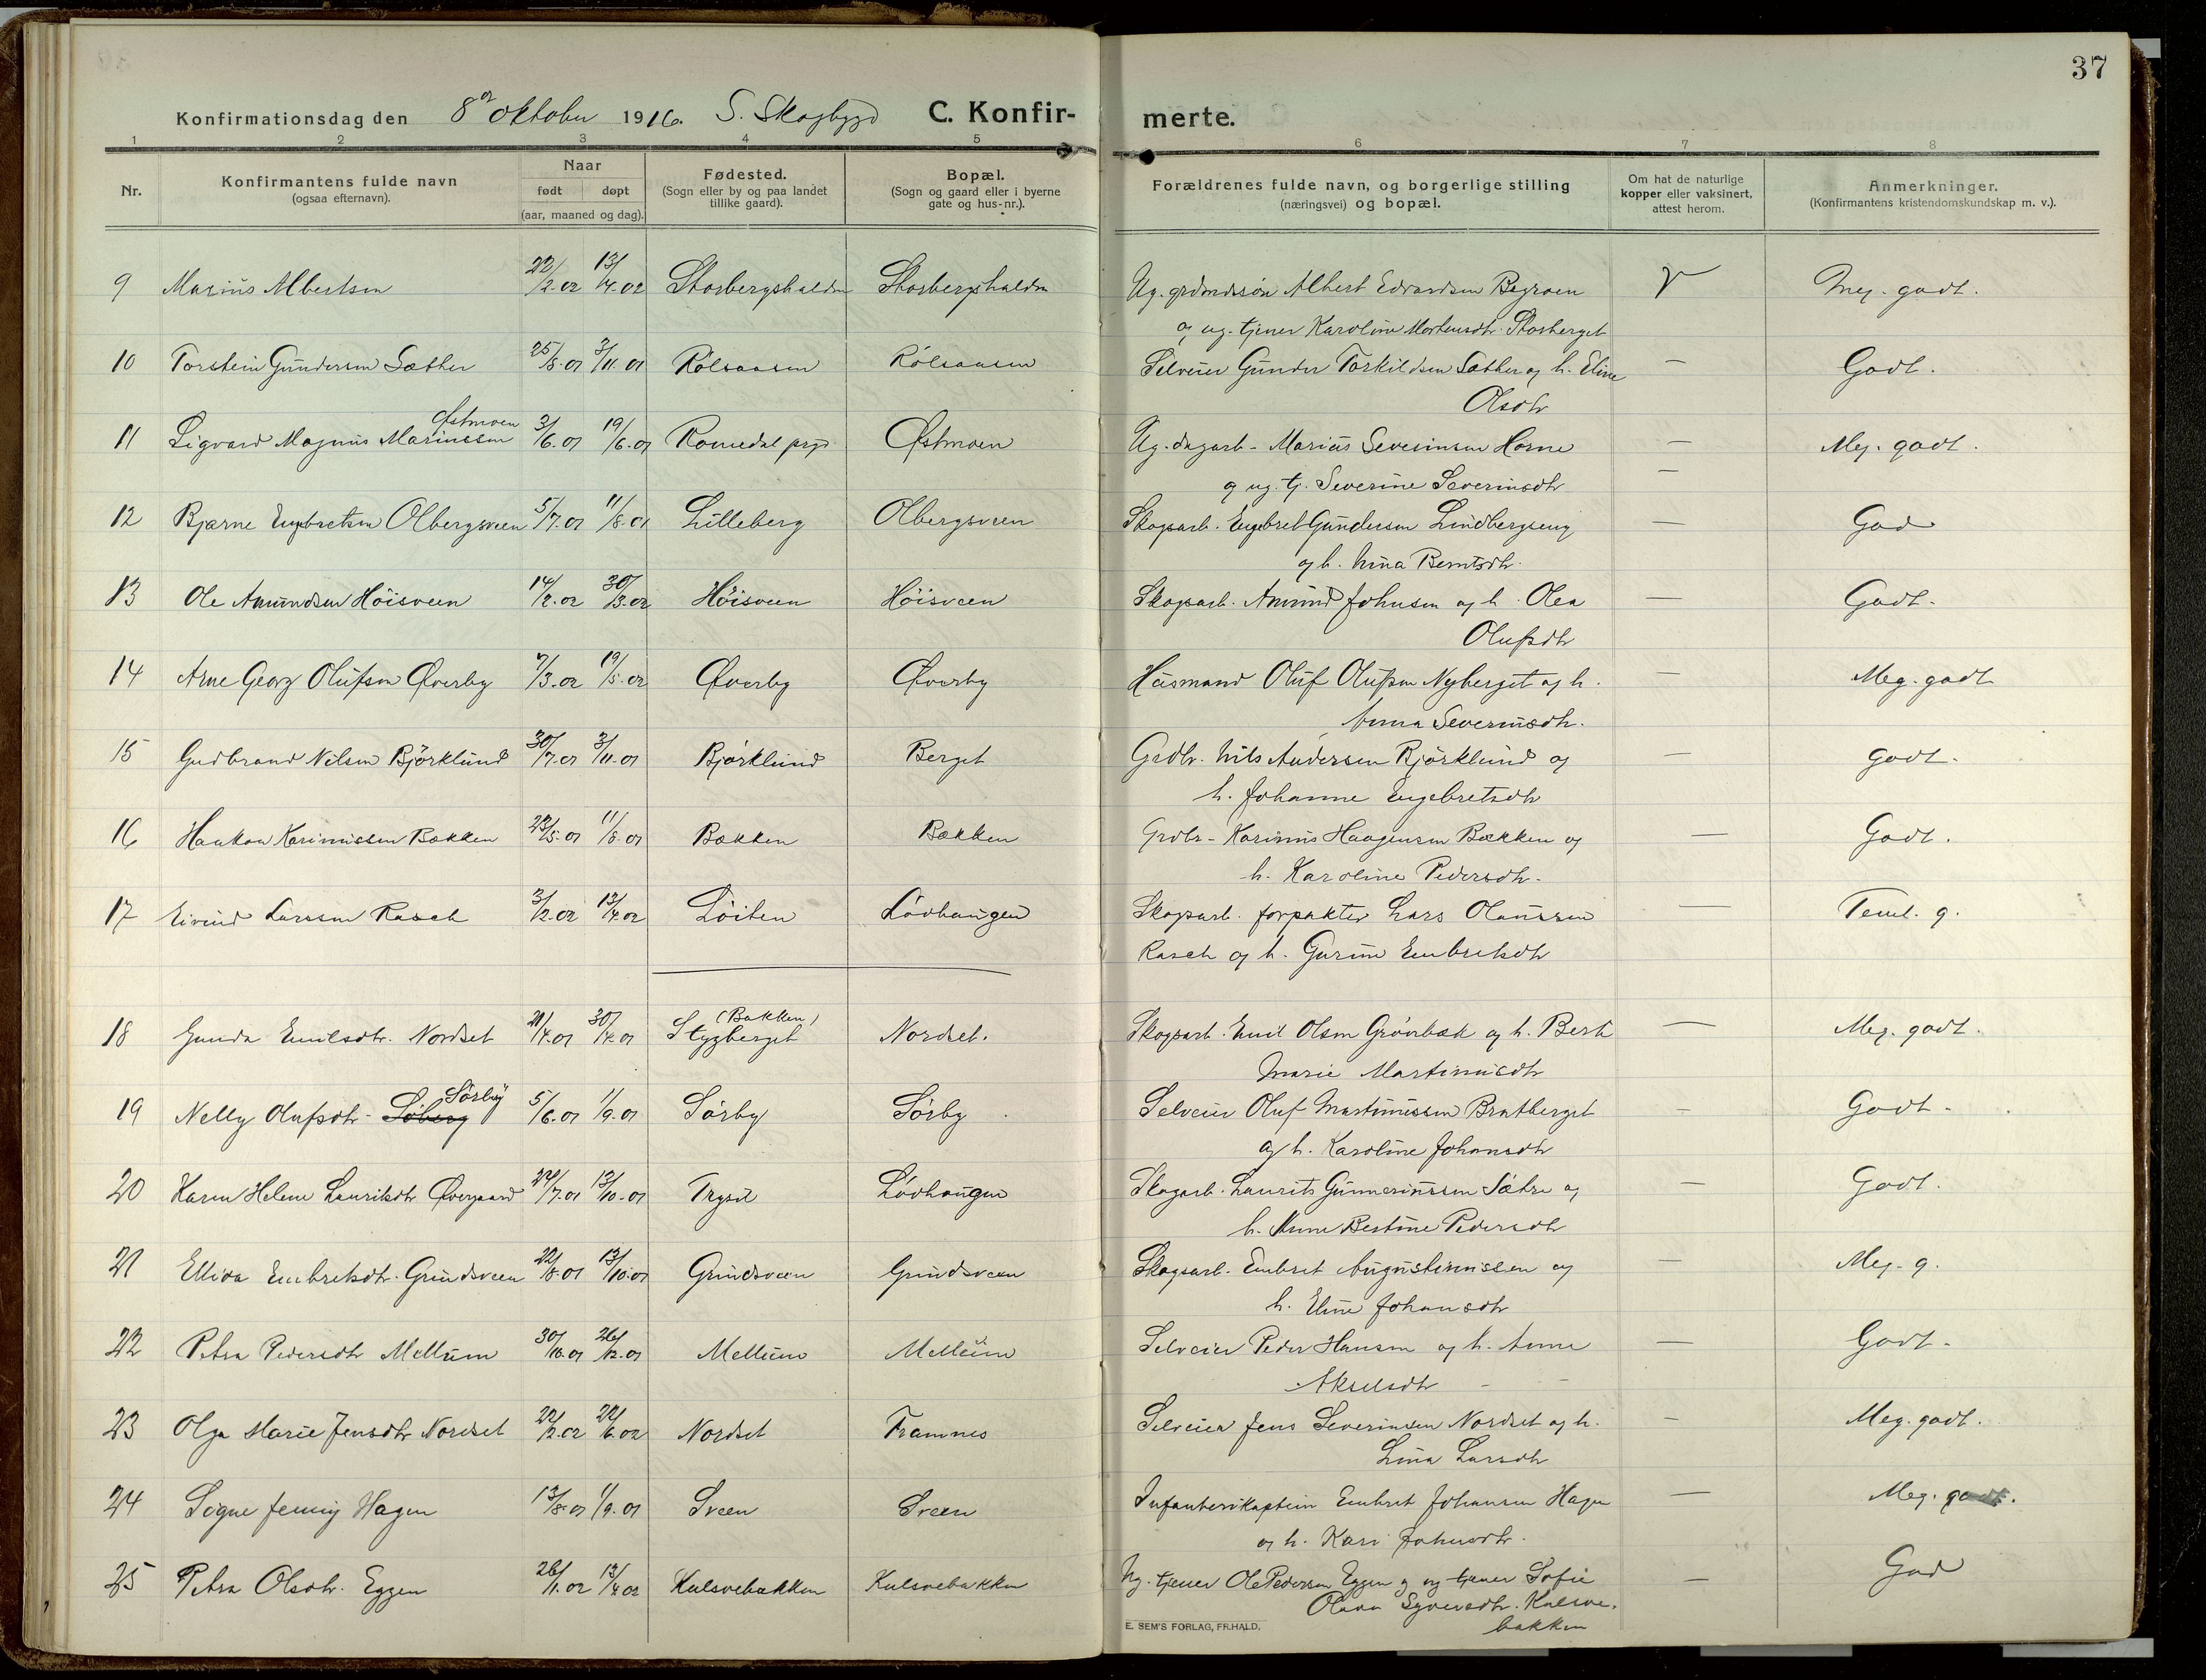 37
Konfirmationsdag den 8 oktober 1916. S. Skogbygd C. Konfir-merte.
1 2 3 4 5 6 7 8
Nr.
Konfirmantens fulde navn
(ogsaa efternavn).
Naar
født døpt
(aar, maaned og dag).
Fødested.
(Sogn eller by og paa landet
tillike gaard).
Bopæl.
(Sogn og gaard eller i byerne
gate og hus-nr.).
Forældrenes fulde navn, og borgerlige stilling
(næringsvei) og bopæl.
Om hat de naturlige
kopper eller vaksinert,
attest herom.
Anmerkninger.
(Konfirmantens kristendomskundskap m. v.).
9 Marius Albertsen 22/2.02 13/4.02 Storbergshalden Storbergshalden Ug. grdmdssøn Albert Edvardsen Begroen V Meg. godt.
og ug. tjener Karoline Mortensdtr. Storberget
10 Torstein Gundersen Sæther 25/8.01 3/11.01 Rölsaasen Rölsaasen Selveier Gunder Torkildsen Sæther og h. Eline — Godt.
Olsdtr
11 Sigvard Magnus Mariussen Østmoen 3/6.01 19/6.01 Romedal prgj Østmoen Ug. dagarb. Marius Severinsen Horne — Meg. godt.
og ug. tj. Severine Severinsdtr —
12 Bjarne Engebretsen Olbergsveen 5/7.01 11/8.01 Lilleberg Olbergsveen Skogsarb. Engebret Gundersen Lindbergseng — God
og h. Nina Berntsdtr.
13 Ole Amundsen Höisveen 14/2.02 30/3.02 Höisveen Höisveen Skogsarb. Amund Johnsen og h. Olea — Godt.
Olufsdtr
14 Arne Georg Olufsen Øverby 7/3.02 19/5.02 Øverby Øverby Husmand Oluf Olufsen Nyberget og h. — Meg. godt
Anna Severinsdtr.
15 Gudbrand Nilsen Björklund 30/7.01 3/11.01 Björklund Berget Grdbr. Nils Andersen Björklund og — godt.
h. Johanne Engebretsdtr
16 Haakon Karinussen Bækken 23/5.01 11/8.01 Bækken Bækken Grdbr. Karinus Haagensen Bækken og — Godt.
h. Karoline Pedersdtr.
17 Eivind Larssen Rasch 3/2.02 13/4.02 Löiten Lövhaugen Skogsarb. forpakter Lars Olaussen — Teml. g.
Rasch og h. Gurine Embretsdtr
18 Gunda Emilsdtr. Nordset 21/4.01 30/4.01 (Bakken) Stygberget Nordset. Skogsarb. Emil Olsen Grönbæk og h. Berte — Meg. godt.
Marie Martinusdtr
19 Nelly Olufsdtr. Söberg Sörby 5/6.01 1/9.01 Sörby Sörby Selveier Oluf Martinussen Bratberget — Godt.
og h. Karoline Johansdtr
20 Karen Helene Lauritsdtr Øvergaard 24/7.01 13/10.01 Trysil Lövhaugen Skogarb. Laurits Gunnerinssen Sætre og — Godt.
h. Anne Bertine Pedersdtr
21 Elliva Embretsdtr. Grundsveen 22/8.01 13/10.01 Grundsveen Grundsveen Skogsarb. Embret Augustinussen og — Meg. g.
h. Eline Johansdtr
22 Petra Pedersdtr Mellum 30/10.01 26/12.01 Mellum Mellum Selveier Peder Hansen og h. Anne — Godt.
Akselsdtr
23 Olga Marie Jensdtr Nordset 22/2.02 22/6.02 Nordset Framnes Selveier Jens Severinsen Nordset og h. — Meg. godt.
Lina Larsdtr
24 Signe Jenny Hagen 13/8.01 1/9.01 Sveen Sveen Infanterikaptein Embret Johansen Hagen — Meg. godt.
og h. Kari Johnsdtr.
25 Petra Olsdtr. Eggen 26/11.02 13/4.02 Kulsvebakken Kulsvebakken Ug. tjener Ole Pedersen Eggen og ug tjener Sofie — God
Olava Syversdtr. Kulsve-
bakken
E. SEM'S FORLAG, FR.HALD.